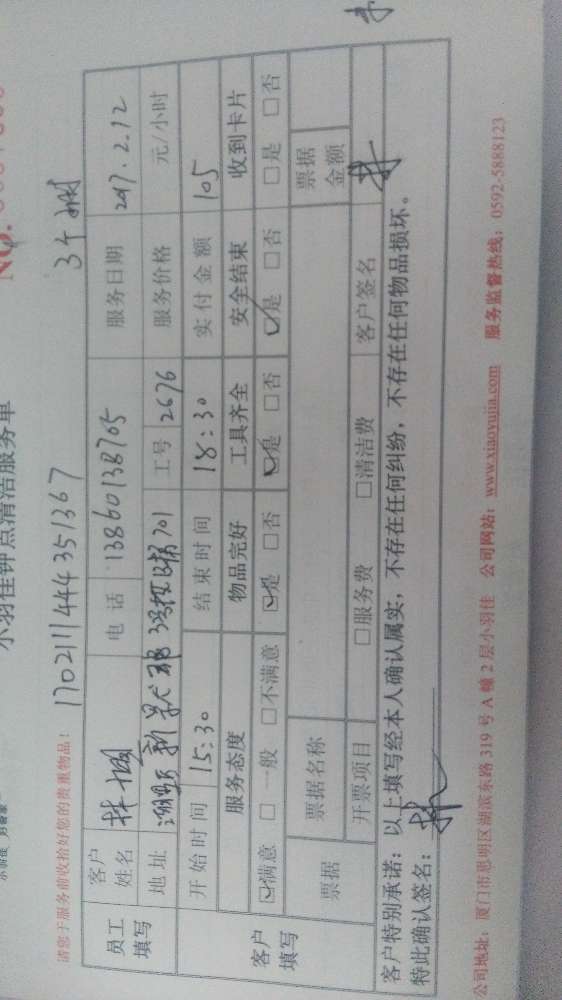 小羽佳钟点清洁服务单
NO.
170211144435 1367
3个
请您于服务前收拾好您的贵重物品!
员工填写
客户姓名 林 电话 13860138705 服务日期 2017.2.12
地址 3号 701 工号 2676 服务价格 元/小时
客户填写
开始时间 15:30 结束时间 18:30 实付金额 105
服务态度 物品完好 工具齐全 安全结束 收到卡片
☑满意 □一般 □不满意 ☑是 □否 ☑是 □否 ☑是 □否 □是 □否
票据 票据名称 票据金额
开票项目 □服务费 □清洁费 客户签名
客户特别承诺:以上填写经本人确认属实,不存在任何纠纷,不存在任何物品损坏。
特此确认签名:
公司地址:厦门市思明区湖滨东路 319 号 A 幢 2 层小羽佳 公司网站:www.xiaoyujia.com 服务监督热线:0592-5888123